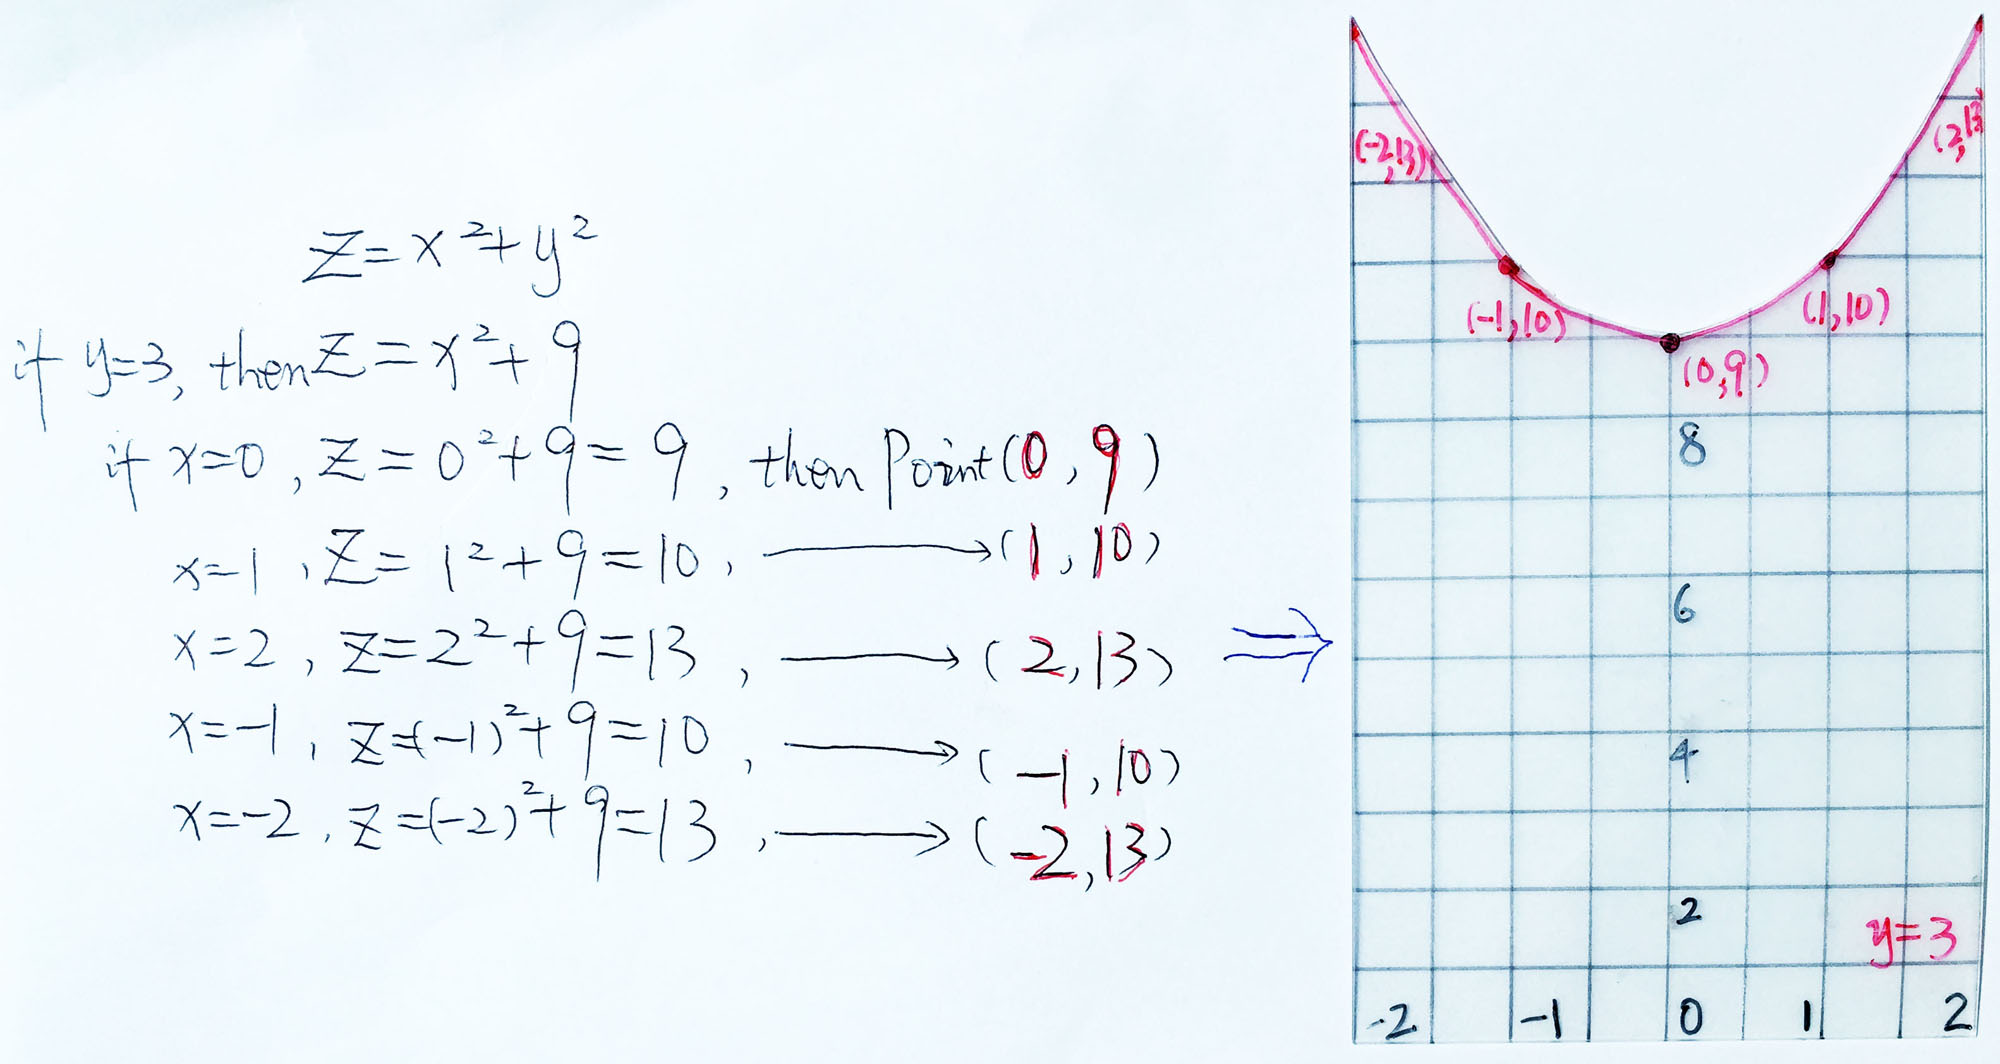 z=x²+y²
if y=3, then z=x²+9
if x=0, z=0²+9=9, then Point(0,9)
x=1, z=1²+9=10, → (1,10)
x=2, z=2²+9=13, → (2,13) ⇒
x=-1, z=(-1)²+9=10, → (-1,10)
x=-2, z=(-2)²+9=13, → (-2,13)
(-2,13) (2,13
(-1,10) (1,10)
(0,9)
8
6
4
2
y=3
-2 -1 0 1 2